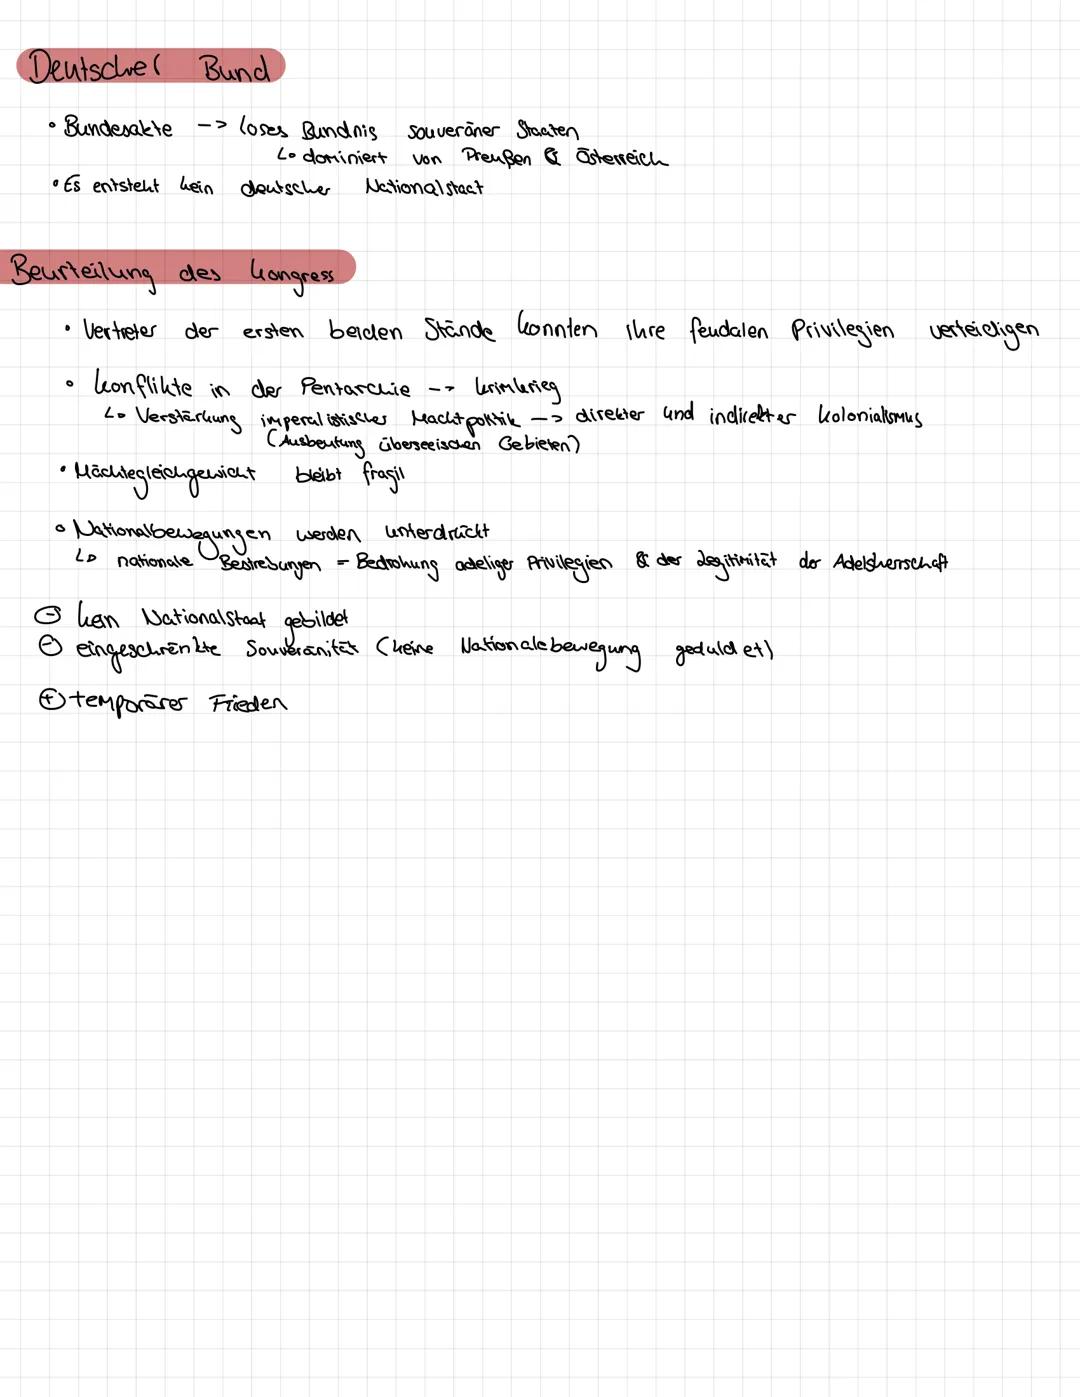 Deutscher Bund
• Bundesakte --> loses Bündnis souveräner Staaten
↳ dominiert von Preußen & Österreich
• Es entsteht kein deutscher Nationalstaat
Beurteilung des Kongress
• Vertreter der ersten beiden Stände konnten ihre feudalen Privilegien verteidigen
• Konflikte in der Pentarchie --> Krimkrieg
↳ Verstärkung imperalistischer Machtpolitik --> direkter und indirekter Kolonialismus
(Ausbeutung überseeischen Gebieten)
• Mächtegleichgewicht bleibt fragil
• Nationalbewegungen werden unterdrückt
↳ nationale Bestrebungen = Bedrohung adeliger Privilegien & der Legitimität der Adelsherrschaft
⊖ kein Nationalstaat gebildet
⊖ eingeschränkte Souveränität (keine Nationalebewegung geduldet)
⊕ temporärer Frieden